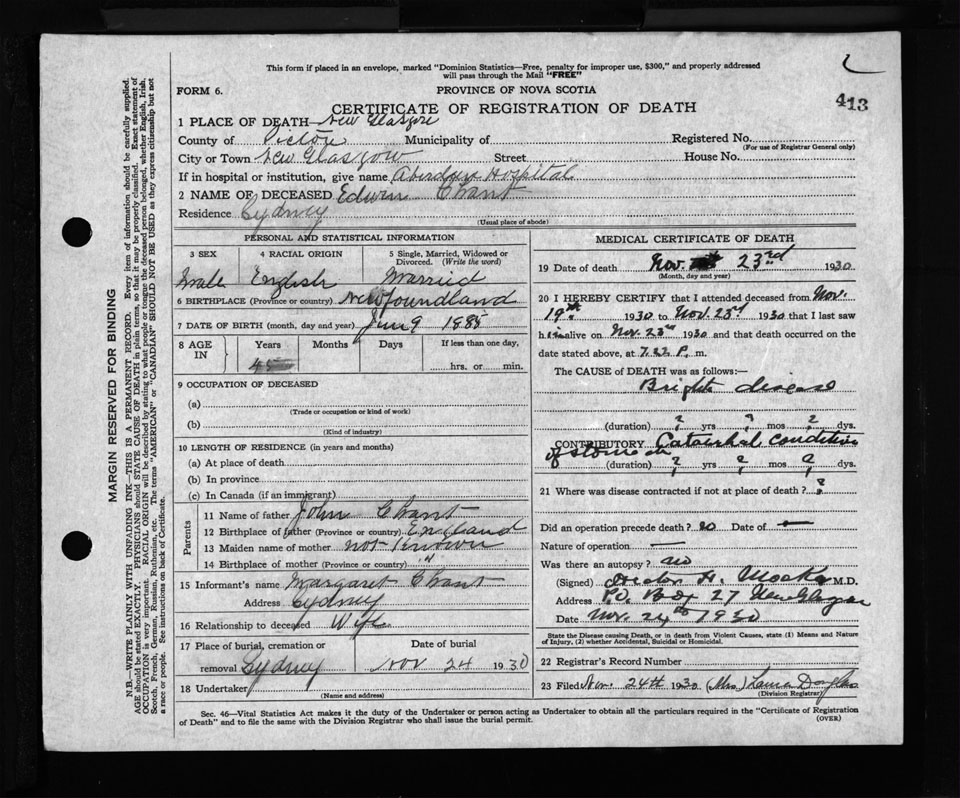 This form if placed in an envelope, marked "Dominion Statistics—Free, penalty for improper use, $300," and properly addressed
will pass through the Mail "FREE"
FORM 6.
PROVINCE OF NOVA SCOTIA
CERTIFICATE OF REGISTRATION OF DEATH
413
1 PLACE OF DEATH New Glasgow
County of Pictou Municipality of Registered No.
(For use of Registrar General only)
City or Town New Glasgow Street House No.
If in hospital or institution, give name Aberdeen Hospital
2 NAME OF DECEASED Edwin Chant
Residence Sydney
(Usual place of abode)
PERSONAL AND STATISTICAL INFORMATION
3 SEX 4 RACIAL ORIGIN 5 Single, Married, Widowed or Divorced. (Write the word)
Male English Married
6 BIRTHPLACE (Province or country) Newfoundland
7 DATE OF BIRTH (month, day and year) June 9 1885
8 AGE IN Years Months Days If less than one day,
45 hrs. or min.
9 OCCUPATION OF DECEASED
(a)
(Trade or occupation or kind of work)
(b)
(Kind of industry)
10 LENGTH OF RESIDENCE (in years and months)
(a) At place of death
(b) In province
(c) In Canada (if an immigrant)
Parents
11 Name of father John Chant
12 Birthplace of father (Province or country) England
13 Maiden name of mother not Known
14 Birthplace of mother (Province or country) "
15 Informant's name Margaret Chant
Address Sydney
16 Relationship to deceased Wife
17 Place of burial, cremation or Date of burial
removal Sydney Nov 24 1930
18 Undertaker
(Name and address)
MEDICAL CERTIFICATE OF DEATH
19 Date of death Nov. 23rd 1930
(Month, day and year)
20 I HEREBY CERTIFY that I attended deceased from Nov.
19th 1930 to Nov. 23rd 1930 that I last saw
h im alive on Nov. 23rd 1930 and that death occurred on the
date stated above, at 7.22 P. m.
The CAUSE of DEATH was as follows:—
Brights disease
(duration) ? yrs ? mos ? dys.
CONTRIBUTORY Catarrhal condition
of stomach
(duration) ? yrs ? mos ? dys.
21 Where was disease contracted if not at place of death? ?
Did an operation precede death? no Date of —
Nature of operation —
Was there an autopsy? no
(Signed) H. M.D.
Address P.O. Box 27 New Glasgow
Date Nov. 24th 1930
State the Disease causing Death, or in death from Violent Causes, state (1) Means and Nature
of Injury, (2) whether Accidental, Suicidal or Homicidal.
22 Registrar's Record Number
23 Filed Nov. 24th 1930 (Mrs) Laura Douglas
(Division Registrar)
Sec. 46—Vital Statistics Act makes it the duty of the Undertaker or person acting as Undertaker to obtain all the particulars required in the "Certificate of Registration
of Death" and to file the same with the Division Registrar who shall issue the burial permit.
(OVER)
MARGIN RESERVED FOR BINDING
N.B.—WRITE PLAINLY WITH UNFADING INK—THIS IS A PERMANENT RECORD. Every item of information should be carefully supplied.
AGE should be stated EXACTLY. PHYSICIANS should STATE CAUSE OF DEATH in plain terms, so that it may be properly classified. Exact statement of
OCCUPATION is very important. RACIAL ORIGIN will be described by stating to what people or tongue the deceased person belonged, whether English, Irish,
Scotch, French, German, Russian, Ruthenian, etc. The terms "AMERICAN" or "CANADIAN" SHOULD NOT BE USED as they express citizenship but not
a race or people. See instructions on back of Certificate.